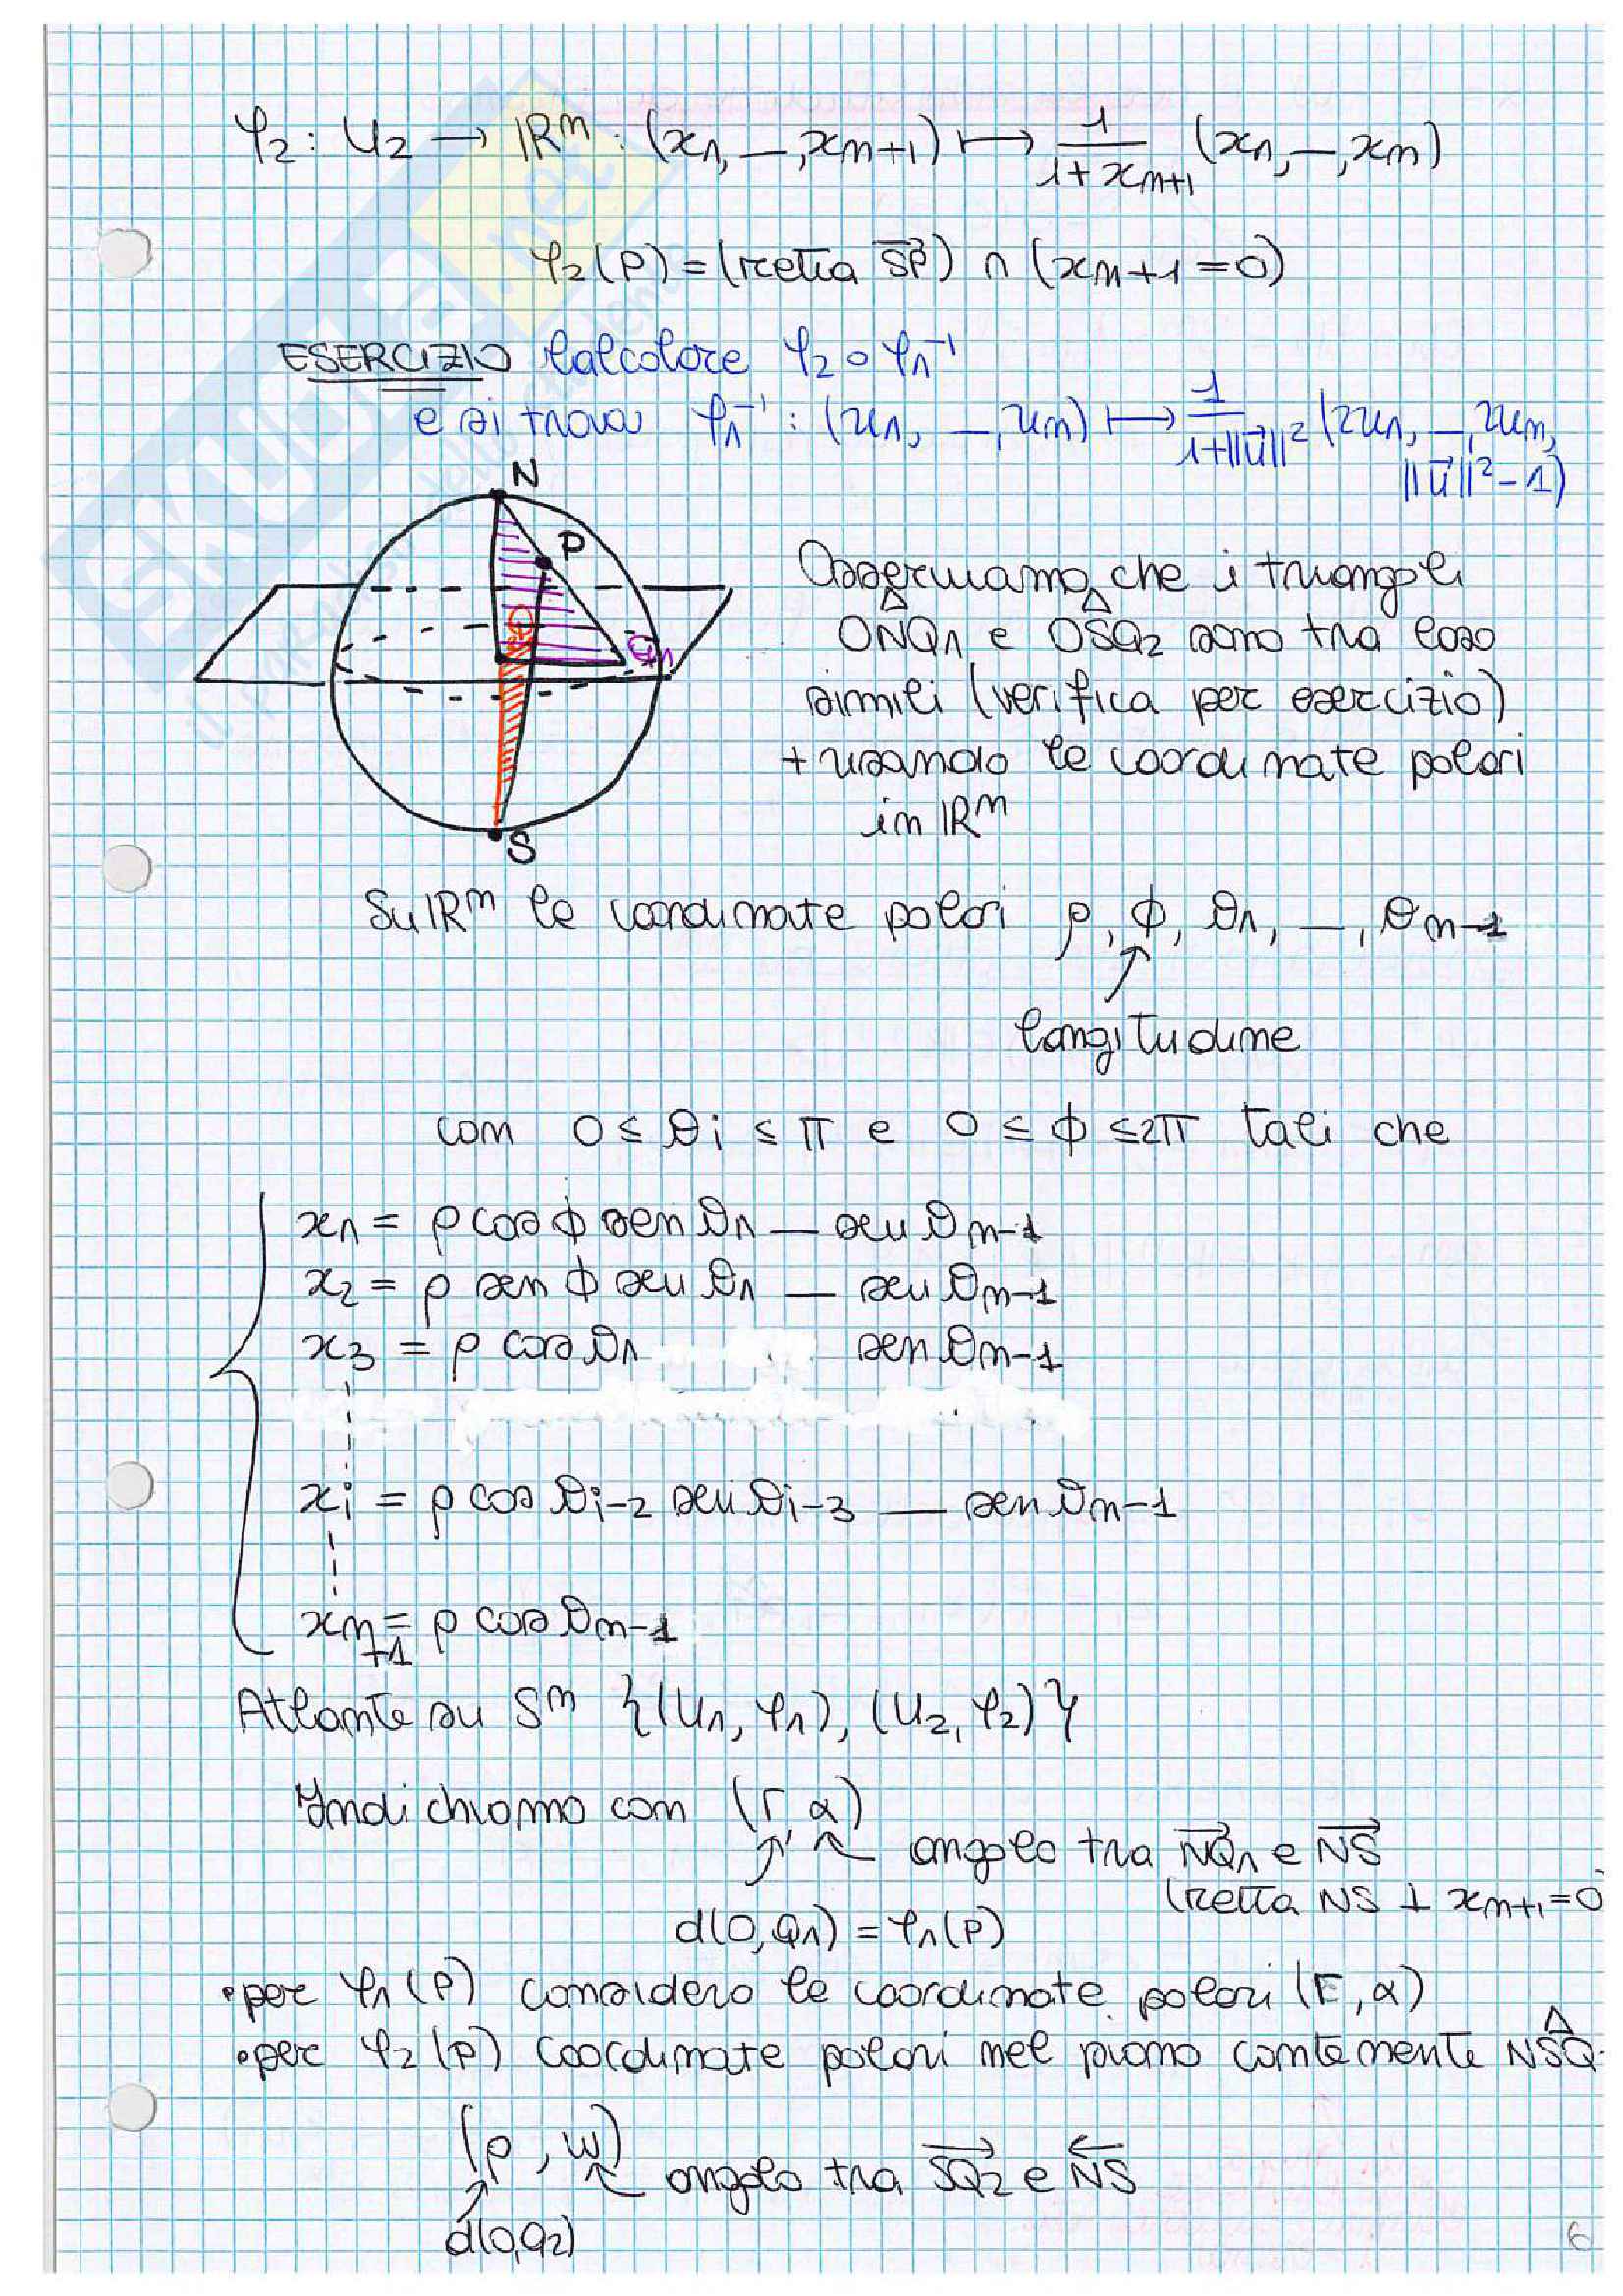 φ₂: U₂ → ℝⁿ: (x₁, —, xₙ₊₁) ↦ 1/(1+xₙ₊₁) (x₁, —, xₙ)
φ₂(P) = (retta SP→) ∩ (xₙ₊₁ = 0)
ESERCIZIO Calcolare φ₂ ∘ φ₁⁻¹
e si trova φ₁⁻¹: (u₁, —, uₙ) ↦ 1/(1+||u→||²) (2u₁, —, 2uₙ,
||u→||² - 1)
N
P
Q₁
S
Osserviamo che i triangoli
ONQ₁ e OSQ₂ sono tra loro
simili (verifica per esercizio)
+ usando le coordinate polari
in ℝⁿ
Su ℝⁿ le coordinate polari ρ, φ, θ₁, —, θₙ₋₁
longitudine
con 0 ≤ θi ≤ π e 0 ≤ φ ≤ 2π tali che
x₁ = ρ cos φ sen θ₁ — sen θₙ₋₁
x₂ = ρ sen φ sen θ₁ — sen θₙ₋₁
x₃ = ρ cos θ₁ sen θₙ₋₁
xi = ρ cos θi₋₂ sen θi₋₃ — sen θₙ₋₁
xₙ₊₁ = ρ cos θₙ₋₁
Atlante su Sⁿ {(U₁, φ₁), (U₂, φ₂)}
Indichiamo con (r, α)
angolo tra NQ₁→ e NS→
(retta NS ⊥ xₙ₊₁ = 0
d(O,Q₁) = φ₁(P)
• per φ₁(P) considero le coordinate polari (r, α)
• per φ₂(P) coordinate polari nel piano contenente NSQ.
(ρ, ω)
angolo tra SQ₂→ e NS←
d(O,Q₂)
6